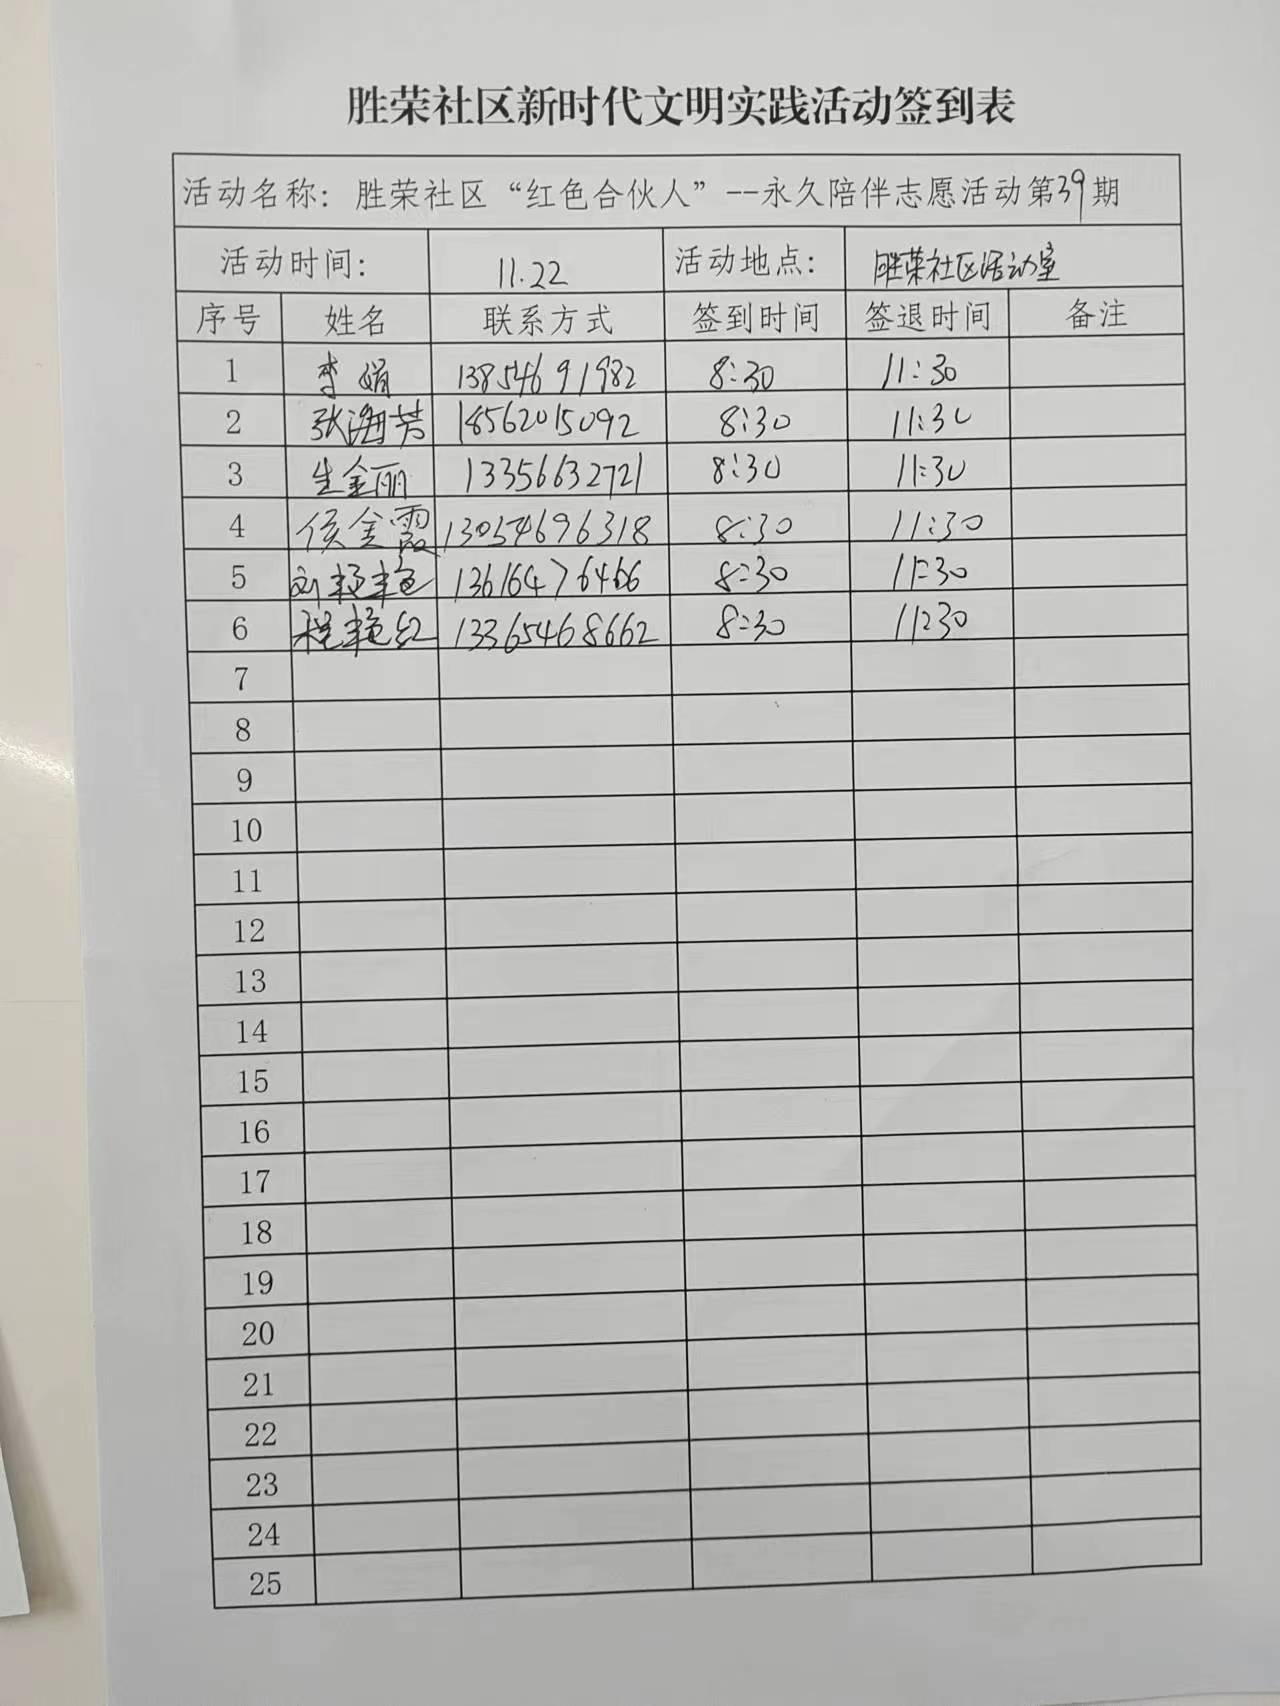 胜荣社区新时代文明实践活动签到表
活动名称：胜荣社区“红色合伙人”--永久陪伴志愿活动第39期
活动时间： 11.22 活动地点： 胜荣社区活动室
序号 姓名 联系方式 签到时间 签退时间 备注
1 李娟 13854691982 8:30 11:30
2 张海芳 18562015092 8:30 11:30
3 生金丽 13356632721 8:30 11:30
4 侯金霞 13054696318 8:30 11:30
5 刘艳艳 13616476466 8:30 11:30
6 程艳红 13365468662 8:30 11:30
7
8
9
10
11
12
13
14
15
16
17
18
19
20
21
22
23
24
25